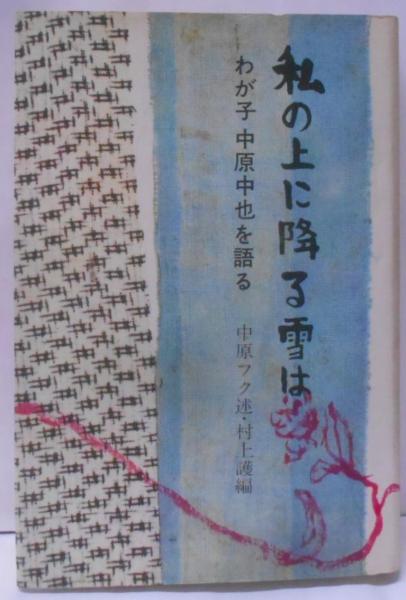 私の上に降る雪は
わが子 中原中也を語る
中原フク述・村上護編